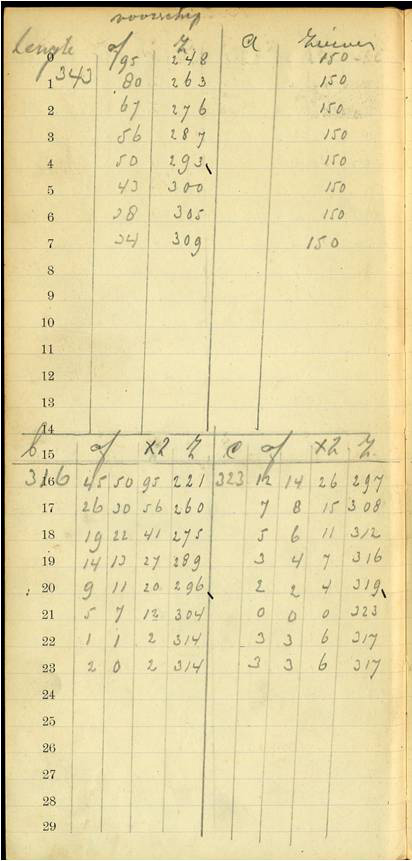 voorschip
Lengte af Z a Zuiver
0 95 248 150
1 343 80 263 150
2 67 276 150
3 56 287 150
4 50 293 150
5 43 300 150
6 38 305 150
7 34 309 150
8
9
10
11
12
13
14
15 b af X2 Z c af X2 Z
16 316 45 50 95 221 323 12 14 26 297
17 26 30 56 260 7 8 15 308
18 19 22 41 275 5 6 11 312
19 14 13 27 289 3 4 7 316
20 9 11 20 296 2 2 4 319
21 5 7 12 304 0 0 0 323
22 1 1 2 314 3 3 6 317
23 2 0 2 314 3 3 6 317
24
25
26
27
28
29